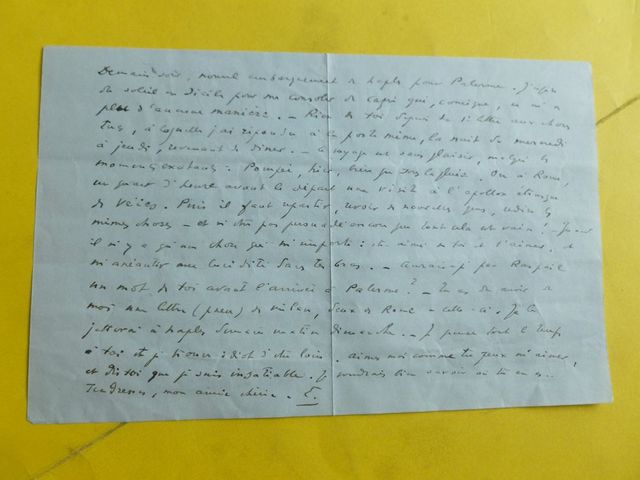 Demain soir, nouvel embarquement à Naples pour Palerme. J'espère
du soleil en Sicile pour me consoler de Capri que, comique, je n'ai
plu d'aucune manière. — Rien de toi depuis ta
à laquelle j'ai répondu à la poste même, la nuit du mercredi
à jeudi, revenant de dîner. — Le voyage me sans plaisir, malgré les
moments excitants. Pompéi, hier, bien que sous la pluie. Ou à Rome,
un quart d'heure avant le départ une visite à l'apollon étrusque
de Véies. Puis il faut repartir, revoir de nouvelles gens, redire les
mêmes choses — et n'être pas persuadé encore que tout cela est vain !
il n'y a qu'une chose qui m'importe : être aimé de toi et t'aimer, et
m'anéantir avec lucidité dans tes bras. — Aurais-je par Raspail
un mot de toi avant l'arrivée à Palerme ? — Tu as dû avoir de
moi une lettre (pneu) de Milan, deux de Rome — celle-ci. Je la
jetterai à Naples demain matin dimanche. — Je pense tout le temps
à toi et je loin. aimes moi comme tu peux m'aimer,
et dis toi que je suis insatiable. Je voudrais bien savoir où tu en es.
Tendresses, mon amie chérie. E.